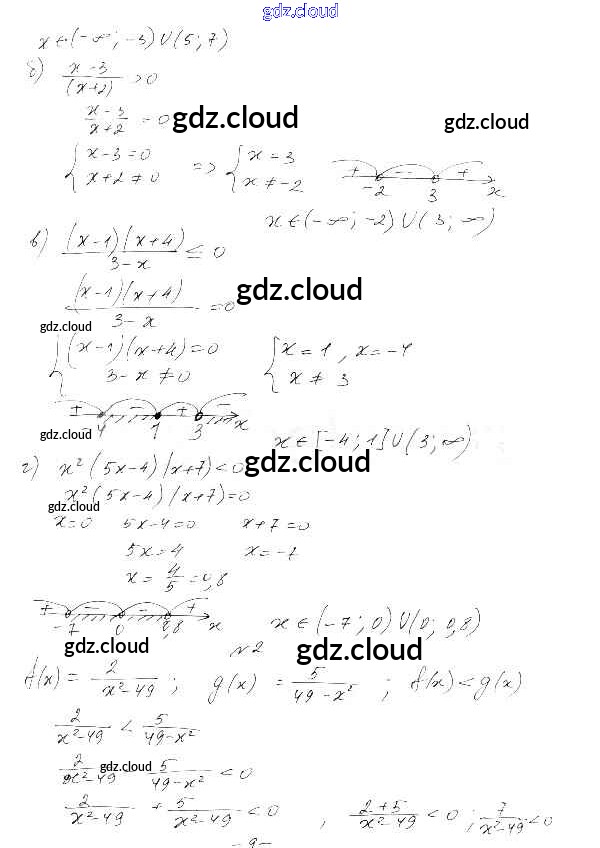 gdz.cloud
x ∈ (-∞; -3) ∪ (5; 7)
б) (x-3)/(x+2) > 0
(x-3)/(x+2) = 0 gdz.cloud gdz.cloud
{ x-3=0 => { x=3
x+2≠0 x≠-2
+ - +
-2 3 x
x ∈ (-∞; -2) ∪ (3; ∞)
в) (x-1)(x+4)/(3-x) ≤ 0
(x-1)(x+4)/(3-x) = 0 gdz.cloud
gdz.cloud
{ (x-1)(x+4)=0 { x=1, x=-4
3-x≠0 x≠3
+ - + -
-4 1 3 x
gdz.cloud x ∈ [-4; 1] ∪ (3; ∞)
г) x²(5x-4)(x+7)<0 gdz.cloud
x²(5x-4)(x+7)=0
gdz.cloud
x=0 5x-4=0 x+7=0
5x=4 x=-7
x= 4/5 =0,8
+ - - +
-7 0 0,8 x x ∈ (-7; 0) ∪ (0; 0,8)
gdz.cloud №2 gdz.cloud
f(x) = 2/(x²-49); g(x) = 5/(49-x²); f(x)<g(x)
2/(x²-49) < 5/(49-x²)
2/(x²-49) - 5/(49-x²) < 0 gdz.cloud
2/(x²-49) + 5/(x²-49) < 0, (2+5)/(x²-49) < 0; 7/(x²-49) < 0
-9-